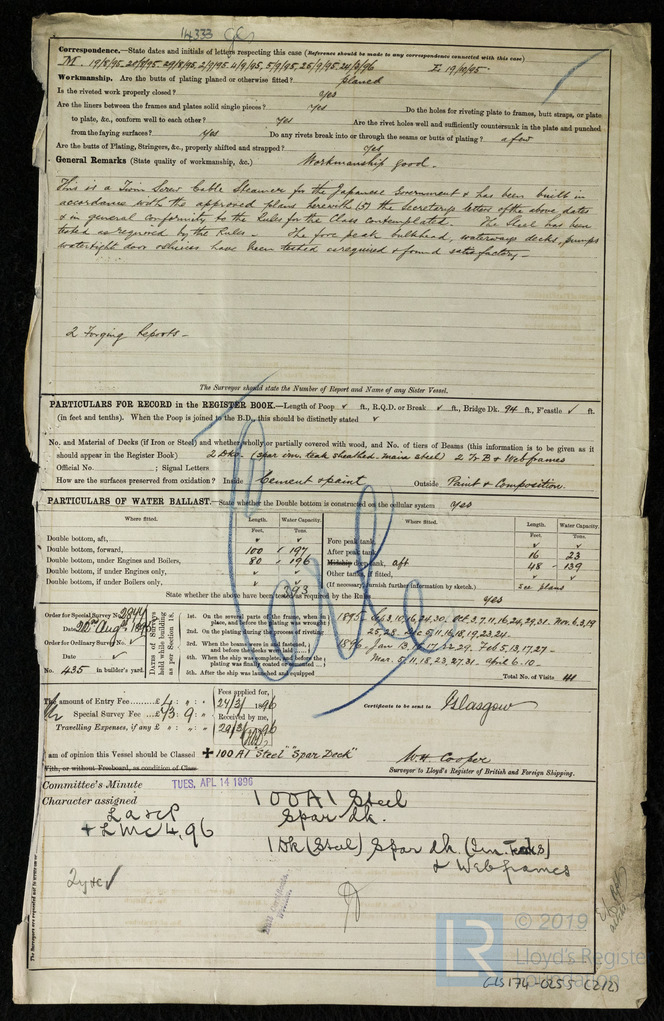 14333
Correspondence.—State dates and initials of letters respecting this case (Reference should be made to any correspondence connected with this case)
M. 19/8/95. 20/8/95. 29/8/95. 2/9/95. 4/9/95. 5/9/95. 25/9/95. 24/3/96 E: 19/10/95.
Workmanship. Are the butts of plating planed or otherwise fitted? planed
Is the riveted work properly closed? yes
Are the liners between the frames and plates solid single pieces? yes Do the holes for riveting plate to frames, butt straps, or plate
to plate, &c., conform well to each other? yes Are the rivet holes well and sufficiently countersunk in the plate and punched
from the faying surfaces? yes Do any rivets break into or through the seams or butts of plating? a few
Are the butts of Plating, Stringers, &c., properly shifted and strapped? yes
General Remarks (State quality of workmanship, &c.) Workmanship good.
This is a Twin Screw Cable Steamer for the Japanese Government & has been built in
accordance with the approved plans herewith (5) the Secretarys letters of the above dates
& in general conformity to the Rules for the Class contemplated. The Steel has been
tested as required by the Rules. The fore peak bulkhead, waterways decks, pumps
watertight doors & sluices have been tested as required & found satisfactory.
2 Forging Reports
The Surveyor should state the Number of Report and Name of any Sister Vessel.
PARTICULARS FOR RECORD in the REGISTER BOOK.—Length of Poop ✓ ft., R.Q.D. or Break ✓ ft., Bridge Dk. 94 ft., F'castle ✓ ft.
(in feet and tenths). When the Poop is joined to the B.D., this should be distinctly stated ✓
No. and Material of Decks (if Iron or Steel) and whether wholly or partially covered with wood, and No. of tiers of Beams (this information is to be given as it
should appear in the Register Book) 2 Dks. (spar im. teak sheathed. main steel) 2 Tr B & Web frames
Official No. ; Signal Letters
How are the surfaces preserved from oxidation? Inside Cement & paint Outside Paint & Composition.
PARTICULARS OF WATER BALLAST.—State whether the Double bottom is constructed on the cellular system yes
Where fitted. Length. Water Capacity. Where fitted. Length. Water Capacity.
Feet. Tons. Feet. Tons.
Double bottom, aft, ✓ ✓ Fore peak tank, ✓ ✓
Double bottom, forward, 100 197 After peak tank, 16 23
Double bottom, under Engines and Boilers, 80 196 Midship deep tank, aft 48 139
Double bottom, if under Engines only, ✓ ✓ Other tanks, if fitted, ✓ ✓
Double bottom, if under Boilers only, ✓ ✓ (If necessary, furnish further information by sketch.) See plans
393
State whether the above have been tested as required by the Rules yes
Order for Special Survey No. 2844
Date 21st Augt 1895
Order for Ordinary Survey No. ✓
Date ✓
No. 435 in builder's yard.
DATES of Surveys held while building as per Section 18.
1st. On the several parts of the frame, when in place, and before the plating was wrought
2nd. On the plating during the process of riveting
3rd. When the beams were in and fastened, and before the decks were laid
4th. When the ship was complete, and before the plating was finally coated or cemented
5th. After the ship was launched and equipped
1895. Sep. 3, 10, 16, 24, 30. Oct. 3, 7, 11, 16, 24, 29, 31. Nov. 6, 13, 19
25, 28. Dec. 5, 11, 16, 18, 19, 23, 24.
1896. Jan 13, 16, 17, 22, 29. Feb 5, 13, 17, 27.
Mar. 5, 11, 18, 23, 27, 31. April 6. 10.
Total No. of Visits 41
The amount of Entry Fee £4 : " : "
Special Survey Fee £43 : 9 : "
Travelling Expenses, if any £ " : " : "
Fees applied for, 24/3/1896
Received by me, 29/3/1896
Certificate to be sent to Glasgow
I am of opinion this Vessel should be Classed ✠ 100 A1 "Steel" "Spar Deck"
With, or without Freeboard, as condition of Class
W. H. Cooper
Surveyor to Lloyd's Register of British and Foreign Shipping.
Committee's Minute TUES. APR 14 1896
Character assigned 100 A1 Steel
Spar dk.
LA & CP
+ LMC 4.96
1 Dk (Steel) Spar dk.
& Web frames
© 2019
LR
Lloyd's Register
Foundation
GLS174-0255 (2/2)